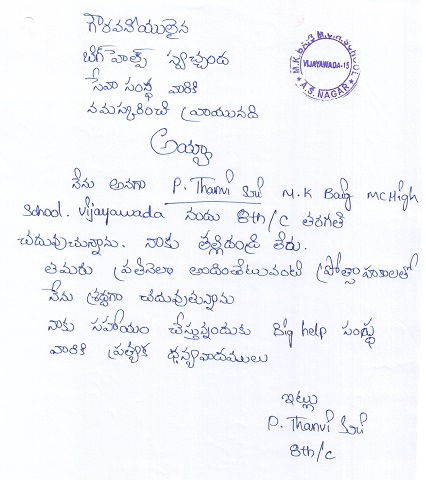 గౌరవనీయులైన
బిగ్‌హెల్ప్ స్వచ్ఛంద
సేవా సంస్థ వారికి
నమస్కరించి వ్రాయునది
M.K. BAIG M.C.H. SCHOOL
VIJAYAWADA-15
A.S. NAGAR
అయ్యా
నేను అనగా P. Thanvi Sri M.K Baig MC High
School. Vijayawada నందు 8th/c తరగతి
చదువుచున్నాను. నాకు తల్లిదండ్రి లేరు.
తమరు ప్రతినెలా అందించేటువంటి ప్రోత్సాహకాలతో
నేను శ్రద్దగా చదువుతున్నాను
నాకు సహాయం చేస్తున్నందుకు Big help సంస్థ
వారికి ప్రత్యేక ధన్యవాదములు
ఇట్లు
P. Thanvi Sri
8th/c